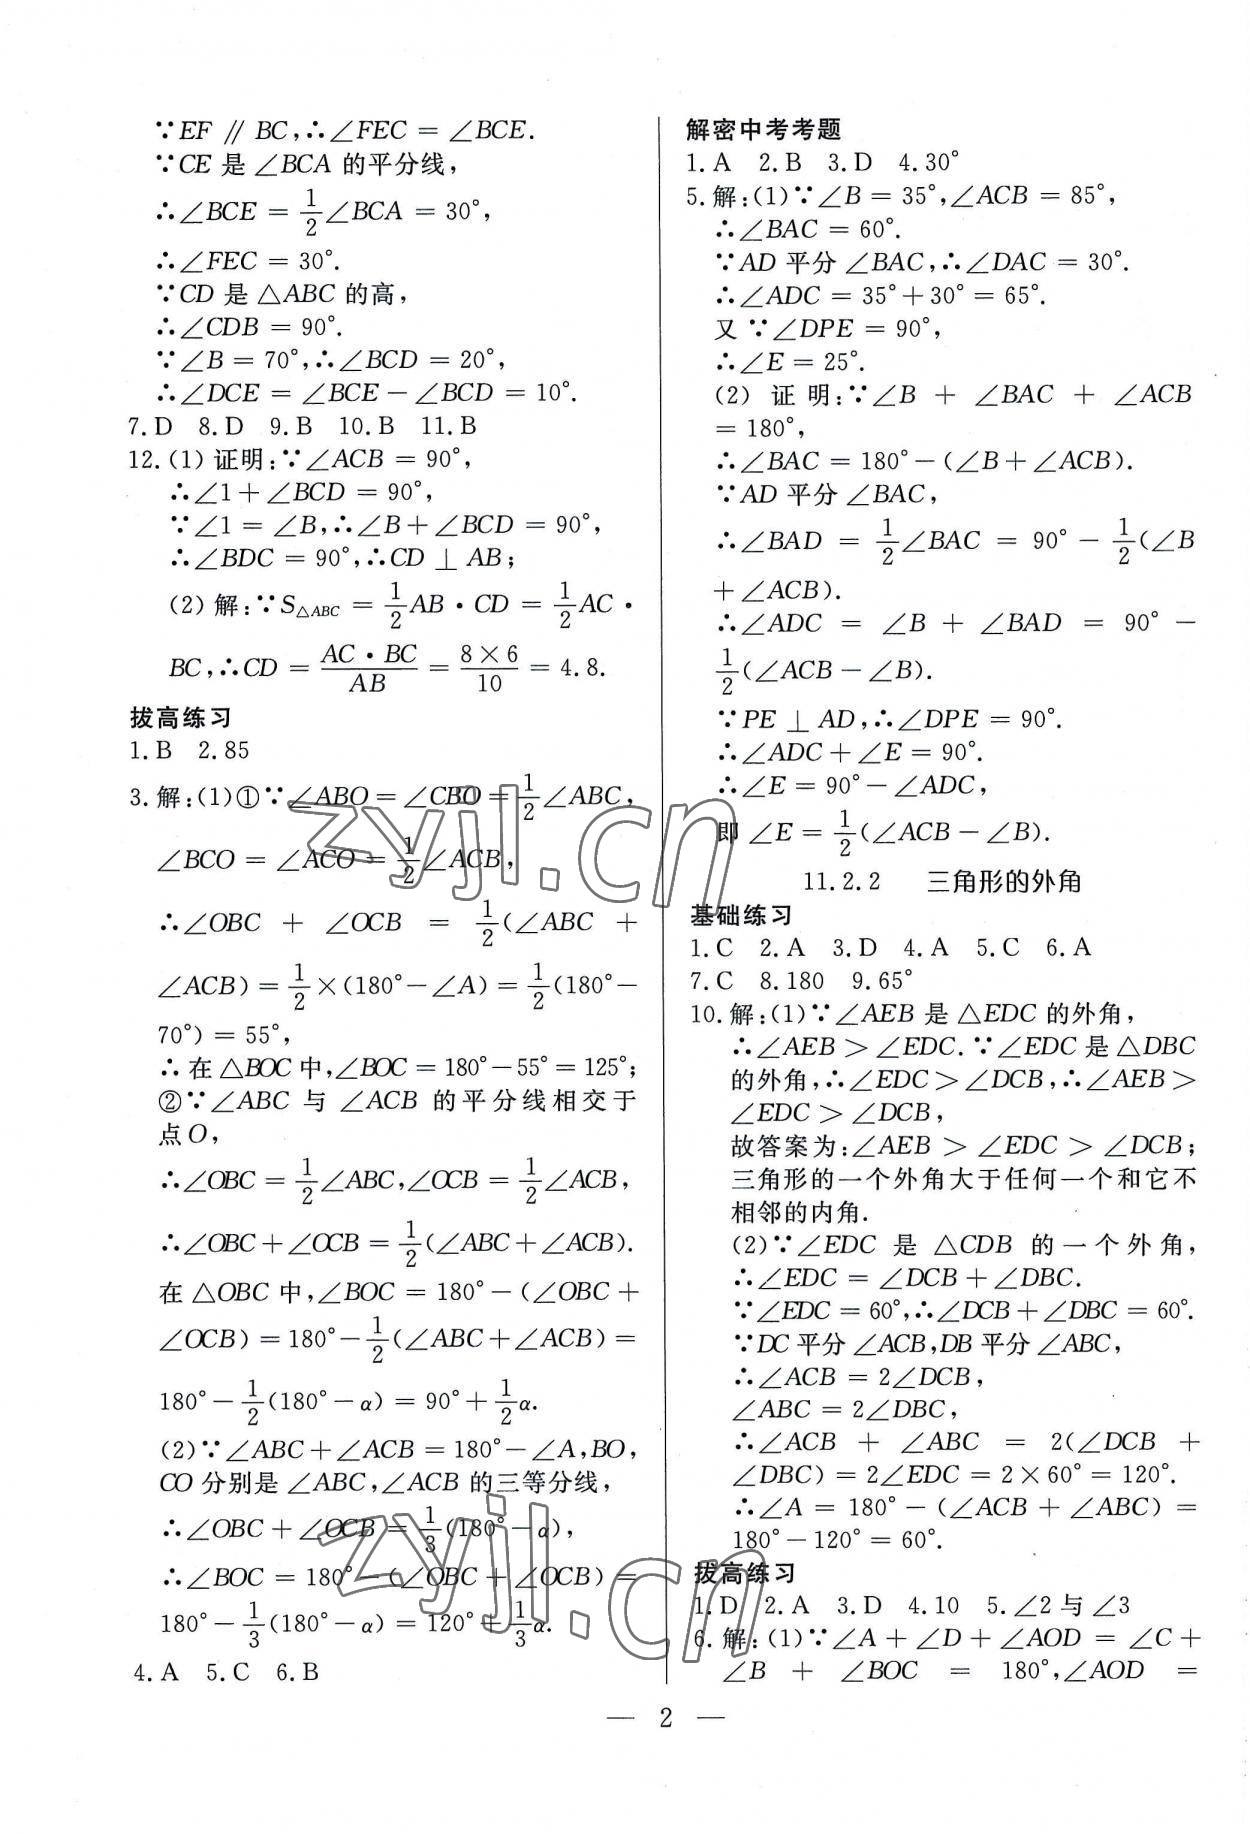 ∵EF∥BC,∴∠FEC=∠BCE.
∵CE 是∠BCA 的平分线,
∴∠BCE=1/2∠BCA=30°,
∴∠FEC=30°.
∵CD 是△ABC 的高,
∴∠CDB=90°.
∵∠B=70°,∴∠BCD=20°,
∴∠DCE=∠BCE-∠BCD=10°.
7.D 8.D 9.B 10.B 11.B
12.(1)证明:∵∠ACB=90°,
∴∠1+∠BCD=90°,
∵∠1=∠B,∴∠B+∠BCD=90°,
∴∠BDC=90°,∴CD⊥AB;
(2)解:∵S△ABC=1/2AB·CD=1/2AC·
BC,∴CD=AC·BC/AB=8×6/10=4.8.
拔高练习
1.B 2.85
3.解:(1)①∵∠ABO=∠CBO=1/2∠ABC,
∠BCO=∠ACO=1/2∠ACB,
∴∠OBC+∠OCB=1/2(∠ABC+
∠ACB)=1/2×(180°-∠A)=1/2(180°-
70°)=55°,
∴在△BOC中,∠BOC=180°-55°=125°;
②∵∠ABC 与∠ACB 的平分线相交于
点O,
∴∠OBC=1/2∠ABC,∠OCB=1/2∠ACB,
∴∠OBC+∠OCB=1/2(∠ABC+∠ACB).
在△OBC中,∠BOC=180°-(∠OBC+
∠OCB)=180°-1/2(∠ABC+∠ACB)=
180°-1/2(180°-α)=90°+1/2α.
(2)∵∠ABC+∠ACB=180°-∠A,BO,
CO分别是∠ABC,∠ACB的三等分线,
∴∠OBC+∠OCB=1/3(180°-α),
∴∠BOC=180°-(∠OBC+∠OCB)=
180°-1/3(180°-α)=120°+1/3α.
4.A 5.C 6.B
解密中考考题
1.A 2.B 3.D 4.30°
5.解:(1)∵∠B=35°,∠ACB=85°,
∴∠BAC=60°.
∵AD平分∠BAC,∴∠DAC=30°.
∴∠ADC=35°+30°=65°.
又∵∠DPE=90°,
∴∠E=25°.
(2)证明:∵∠B+∠BAC+∠ACB
=180°,
∴∠BAC=180°-(∠B+∠ACB).
∵AD平分∠BAC,
∴∠BAD=1/2∠BAC=90°-1/2(∠B
+∠ACB).
∴∠ADC=∠B+∠BAD=90°-
1/2(∠ACB-∠B).
∵PE⊥AD,∴∠DPE=90°.
∴∠ADC+∠E=90°.
∴∠E=90°-∠ADC,
即∠E=1/2(∠ACB-∠B).
11.2.2 三角形的外角
基础练习
1.C 2.A 3.D 4.A 5.C 6.A
7.C 8.180 9.65°
10.解:(1)∵∠AEB是△EDC的外角,
∴∠AEB>∠EDC.∵∠EDC是△DBC
的外角,∴∠EDC>∠DCB,∴∠AEB>
∠EDC>∠DCB,
故答案为:∠AEB>∠EDC>∠DCB;
三角形的一个外角大于任何一个和它不
相邻的内角.
(2)∵∠EDC是△CDB的一个外角,
∴∠EDC=∠DCB+∠DBC.
∵∠EDC=60°,∴∠DCB+∠DBC=60°.
∵DC平分∠ACB,DB平分∠ABC,
∴∠ACB=2∠DCB,
∠ABC=2∠DBC,
∴∠ACB+∠ABC=2(∠DCB+
∠DBC)=2∠EDC=2×60°=120°.
∴∠A=180°-(∠ACB+∠ABC)=
180°-120°=60°.
拔高练习
1.D 2.A 3.D 4.10 5.∠2与∠3
6.解:(1)∵∠A+∠D+∠AOD=∠C+
∠B+∠BOC=180°,∠AOD=
— 2 —
zyjl.cn
zyjl.cn